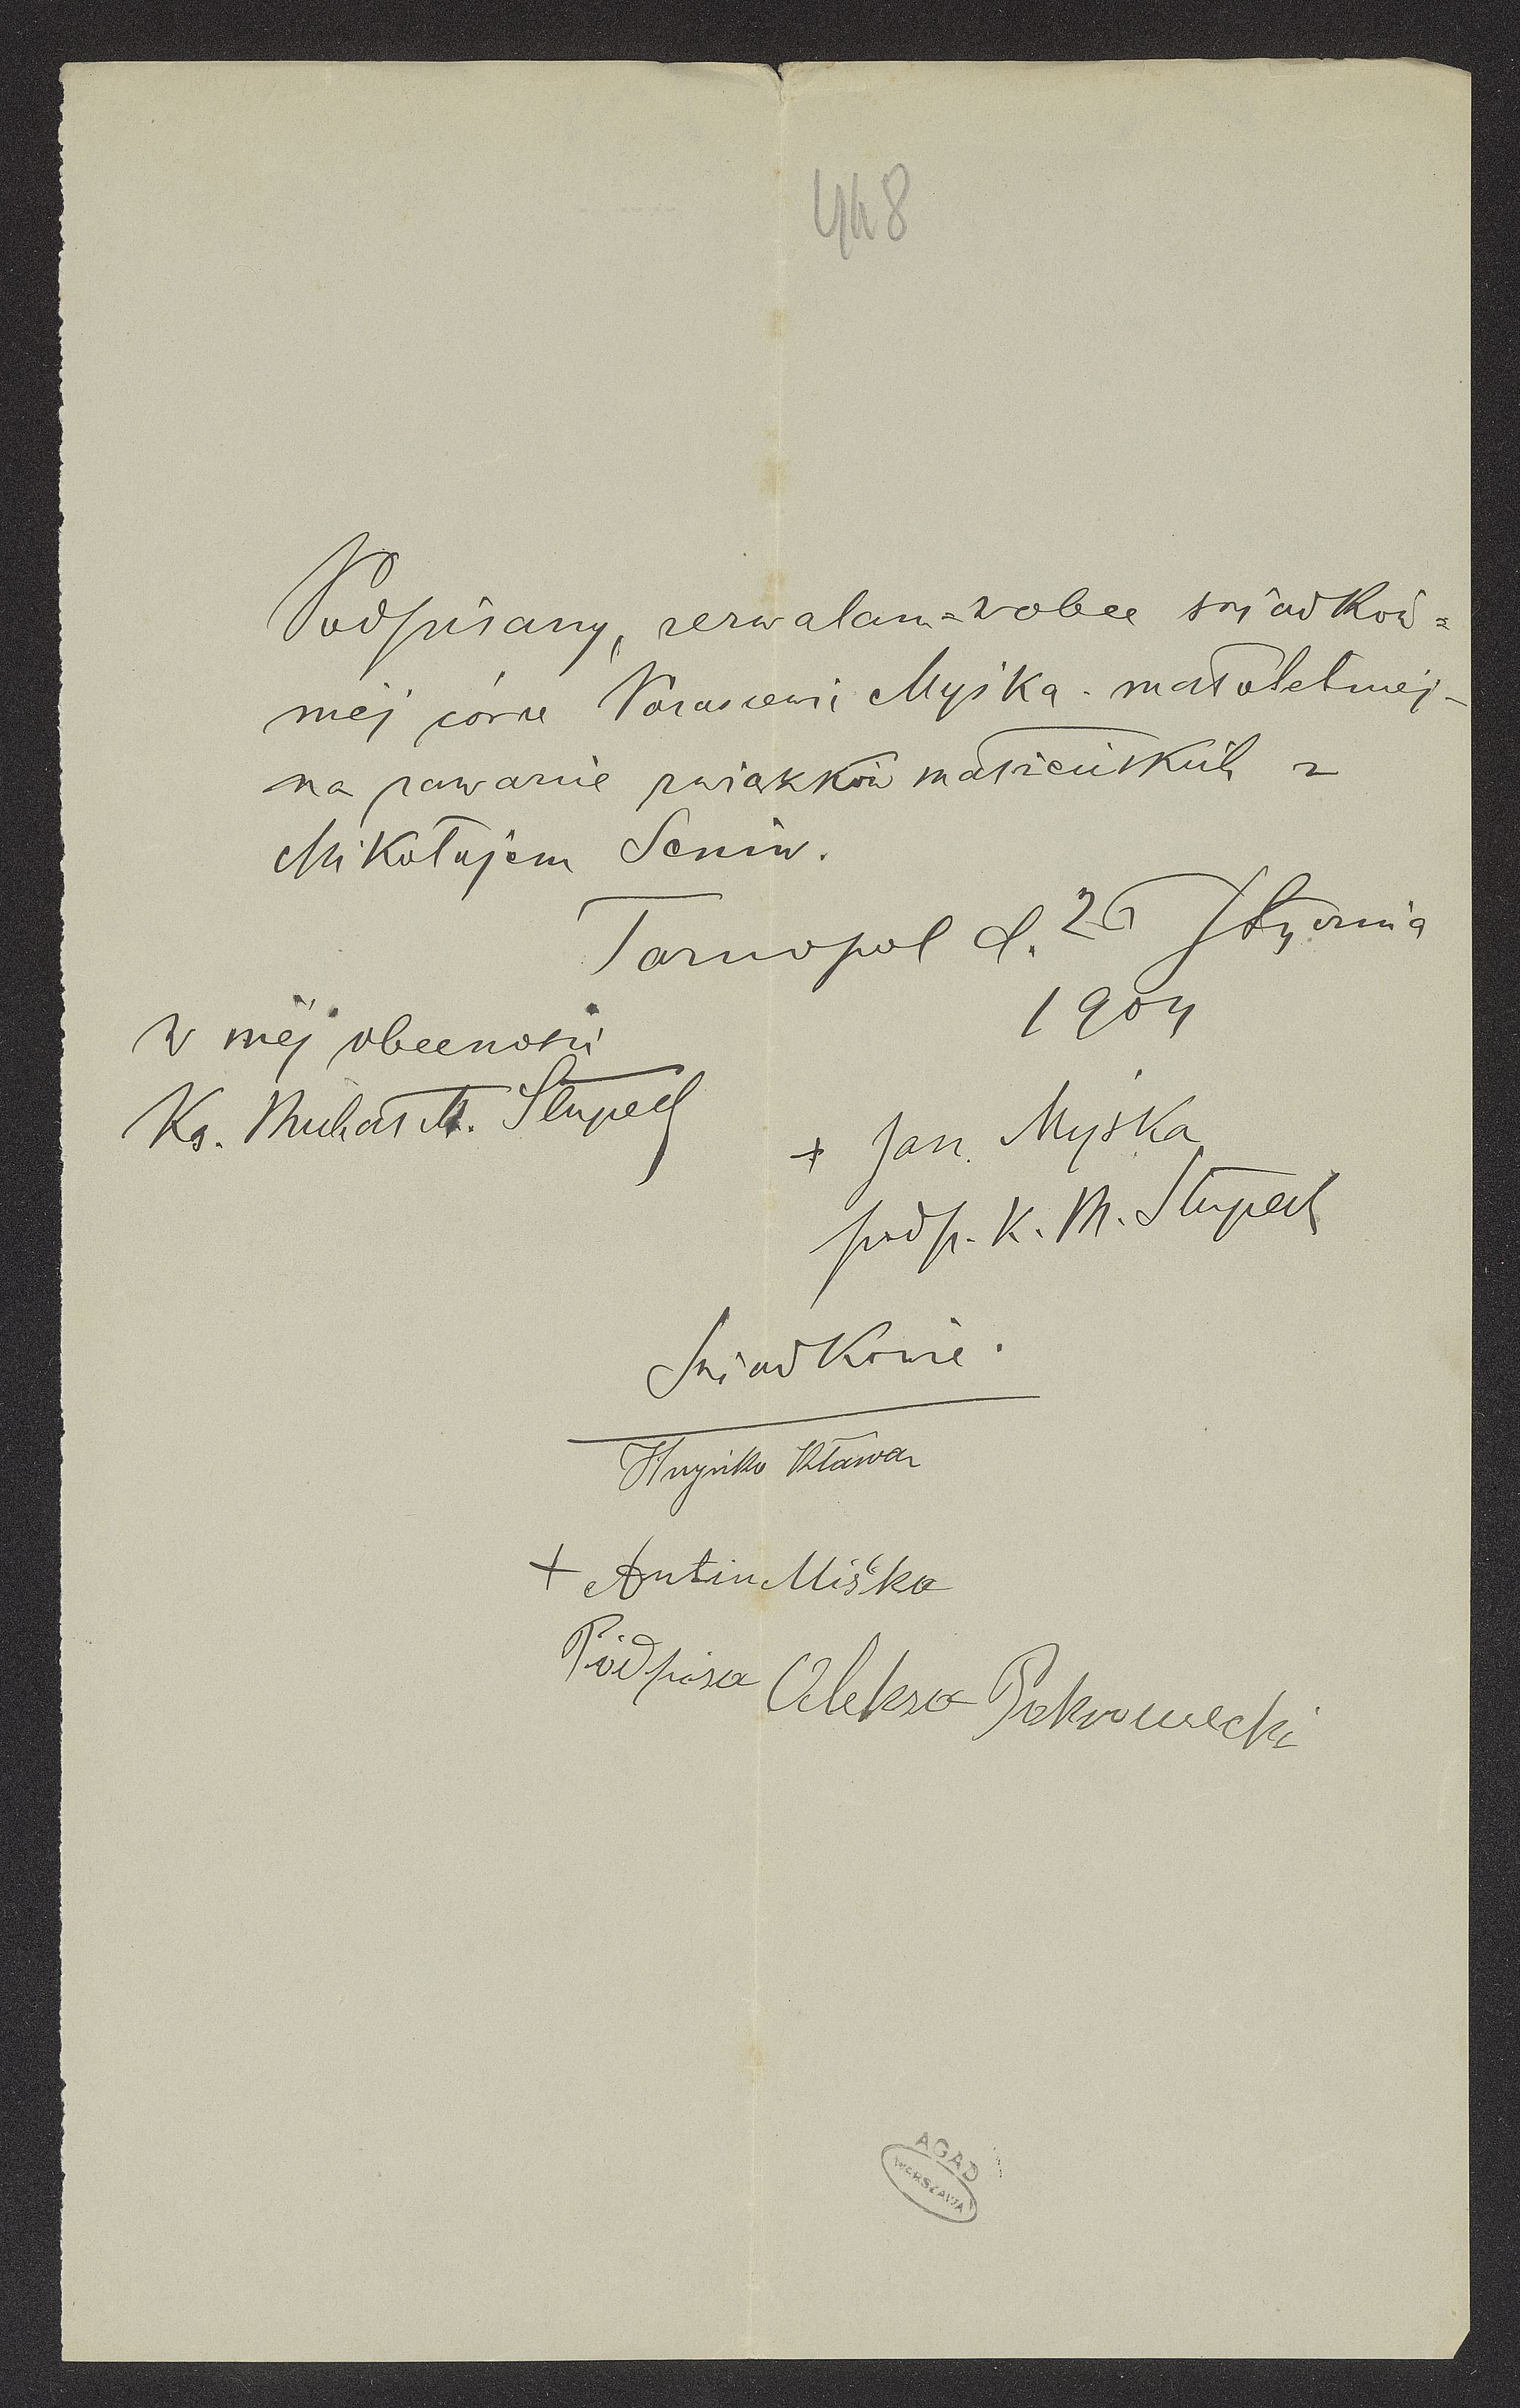 448
Podpisany, zezwalam = wobec świadków =
mej córce Parascewii Myśka - małoletniej -
na zawarcie związków małżeńskich z
Mikołajem Seniw.
Tarnopol d. 26 Stycznia
1904
w mej obecności
Ks. Michał M. Słupech
+ Jan Myśka
podp. K. M. Słupech
Świadkowie.
Hryńko
+ Antin Miśko
Pidpisa Aleksa Pokrowecki
AGAD
WARSZAWA